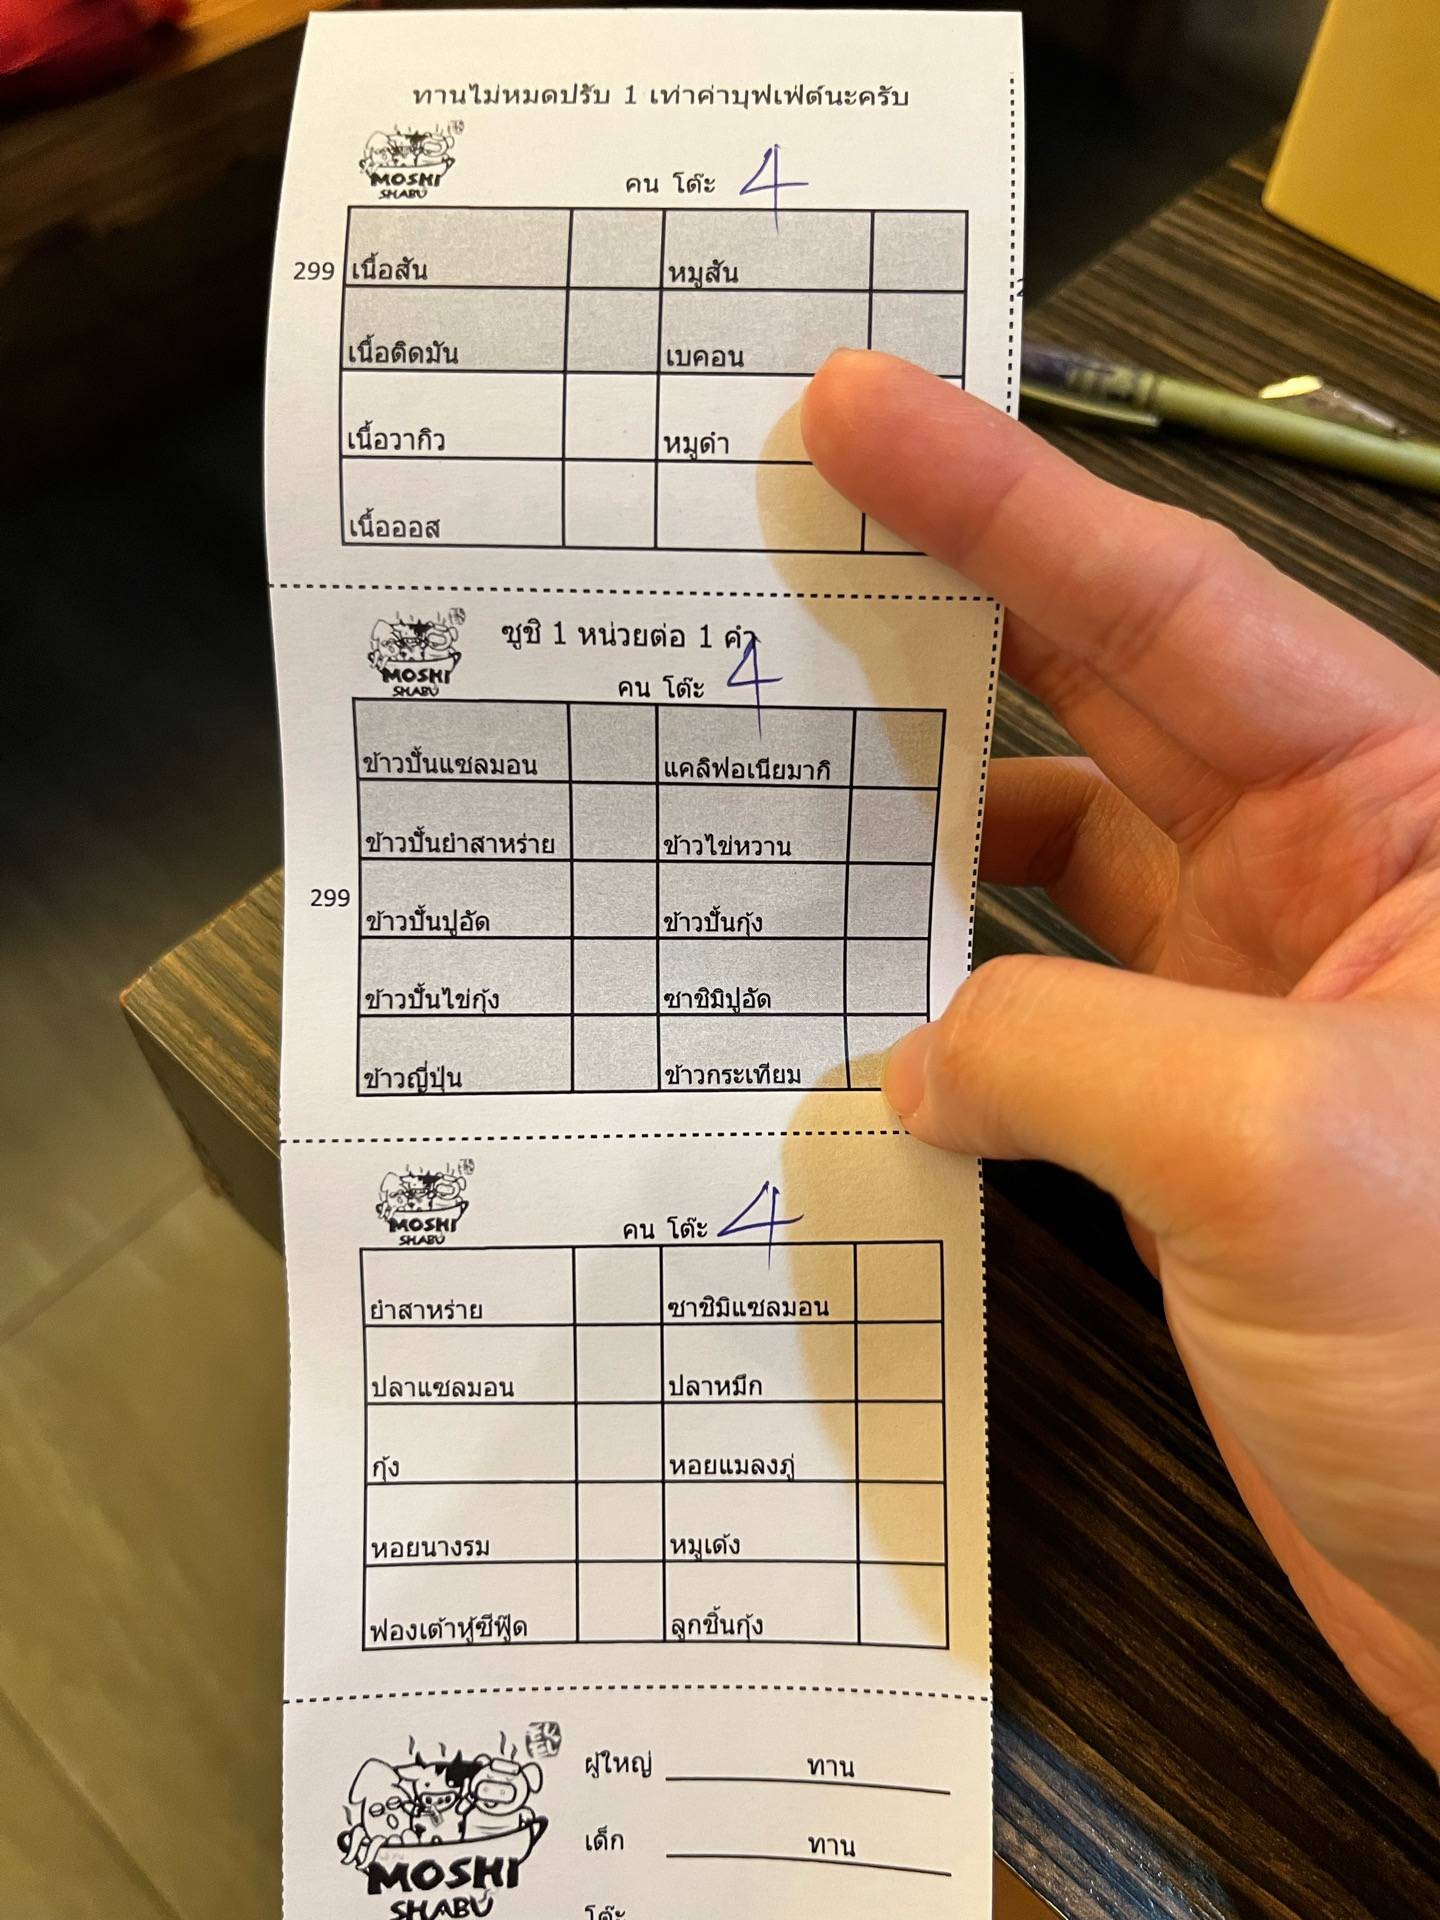 ทานไม่หมดปรับ 1 เท่าค่าบุฟเฟ่ต์นะครับ
MOSHI
SHABU
คน โต๊ะ 4
299
เนื้อสัน หมูสัน
เนื้อติดมัน เบคอน
เนื้อวากิว หมูดำ
เนื้อออส
ซูชิ 1 หน่วยต่อ 1 คำ
MOSHI
SHABU
คน โต๊ะ 4
ข้าวปั้นแซลมอน แคลิฟอเนียมากิ
ข้าวปั้นยำสาหร่าย ข้าวไข่หวาน
299
ข้าวปั้นปูอัด ข้าวปั้นกุ้ง
ข้าวปั้นไข่กุ้ง ซาชิมิปูอัด
ข้าวญี่ปุ่น ข้าวกระเทียม
MOSHI
SHABU
คน โต๊ะ 4
ยำสาหร่าย ซาชิมิแซลมอน
ปลาแซลมอน ปลาหมึก
กุ้ง หอยแมลงภู่
หอยนางรม หมูเด้ง
ฟองเต้าหู้ซีฟู๊ด ลูกชิ้นกุ้ง
ผู้ใหญ่ ทาน
เด็ก ทาน
MOSHI
SHABU
โต๊ะ